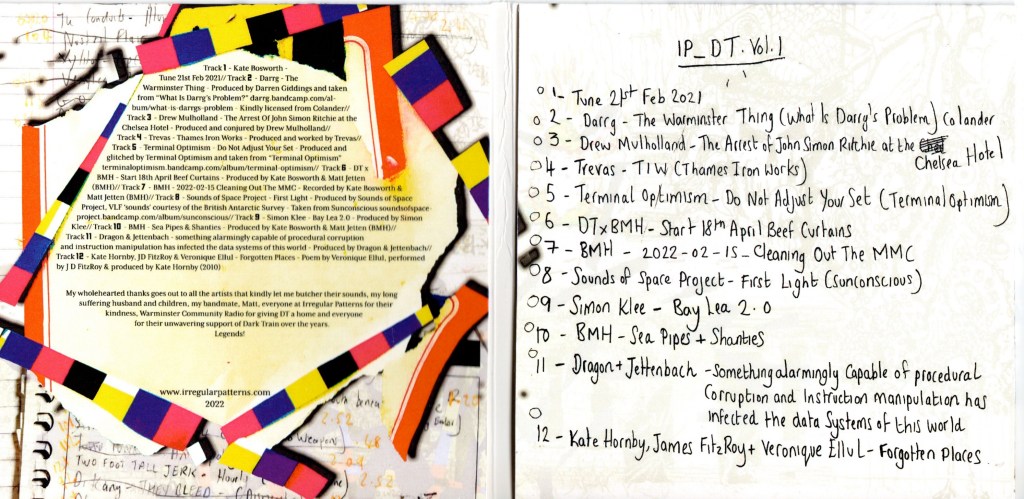 Track 1 - Kate Bosworth -
Tune 21st Feb 2021// Track 2 - Darrg - The
Warminster Thing - Produced by Darren Giddings and taken
from "What Is Darrg's Problem?" darrg.bandcamp.com/al-
bum/what-is-darrgs-problem - Kindly licensed from Colander//
Track 3 - Drew Mulholland - The Arrest Of John Simon Ritchie at the
Chelsea Hotel - Produced and conjured by Drew Mulholland//
Track 4 - Trevas - Thames Iron Works - Produced and worked by Trevas//
Track 5 - Terminal Optimism - Do Not Adjust Your Set - Produced and
glitched by Terminal Optimism and taken from "Terminal Optimism"
terminaloptimism.bandcamp.com/album/terminal-optimism// Track 6 - DT x
BMH - Start 18th April Beef Curtains - Produced by Kate Bosworth & Matt Jetten
(BMH)// Track 7 - BMH - 2022-02-15 Cleaning Out The MMC - Recorded by Kate Bosworth &
Matt Jetten (BMH)// Track 8 - Sounds of Space Project - First Light - Produced by Sounds of Space
Project, VLF 'sounds' courtesy of the British Antarctic Survey - Taken from Sunconscious soundsofspace-
project.bandcamp.com/album/sunconscious// Track 9 - Simon Klee - Bay Lea 2.0 - Produced by Simon
Klee// Track 10 - BMH - Sea Pipes & Shanties - Produced by Kate Bosworth & Matt Jetten (BMH)//
Track 11 - Dragon & Jettenbach - something alarmingly capable of procedural corruption
and instruction manipulation has infected the data systems of this world - Produced by Dragon & Jettenbach//
Track 12 - Kate Hornby, JD FitzRoy & Veronique Ellul - Forgotten Places - Poem by Veronique Ellul, performed
by J D FitzRoy & produced by Kate Hornby (2010)
My wholehearted thanks goes out to all the artists that kindly let me butcher their sounds, my long
suffering husband and children, my bandmate, Matt, everyone at Irregular Patterns for their
kindness, Warminster Community Radio for giving DT a home and everyone
for their unwavering support of Dark Train over the years.
Legends!
www.irregularpatterns.com
2022
2.52
TWO FOOT TALL JERK -
2.58
IP_DT. Vol.1
01 - Tune 21st Feb 2021
02 - Darrg - The Warminster Thing (What Is Darrg's Problem) Colander
03 - Drew Mulholland - The Arrest of John Simon Ritchie at the
Chelsea Hotel
04 - Trevas - TIW (Thames Iron Works)
05 - Terminal Optimism - Do Not Adjust Your Set (Terminal Optimism)
06 - DTxBMH - Start 18th April Beef Curtains
07 - BMH - 2022-02-15_Cleaning Out The MMC
08 - Sounds of Space Project - First Light (Sunconscious)
09 - Simon Klee - Bay Lea 2.0
10 - BMH - Sea Pipes + Shanties
11 - Dragon + Jettenbach - Something alarmingly Capable of procedural
Corruption and Instruction manipulation has
infected the data Systems of this world
12 - Kate Hornby, James FitzRoy + Veronique Ellul - Forgotten Places